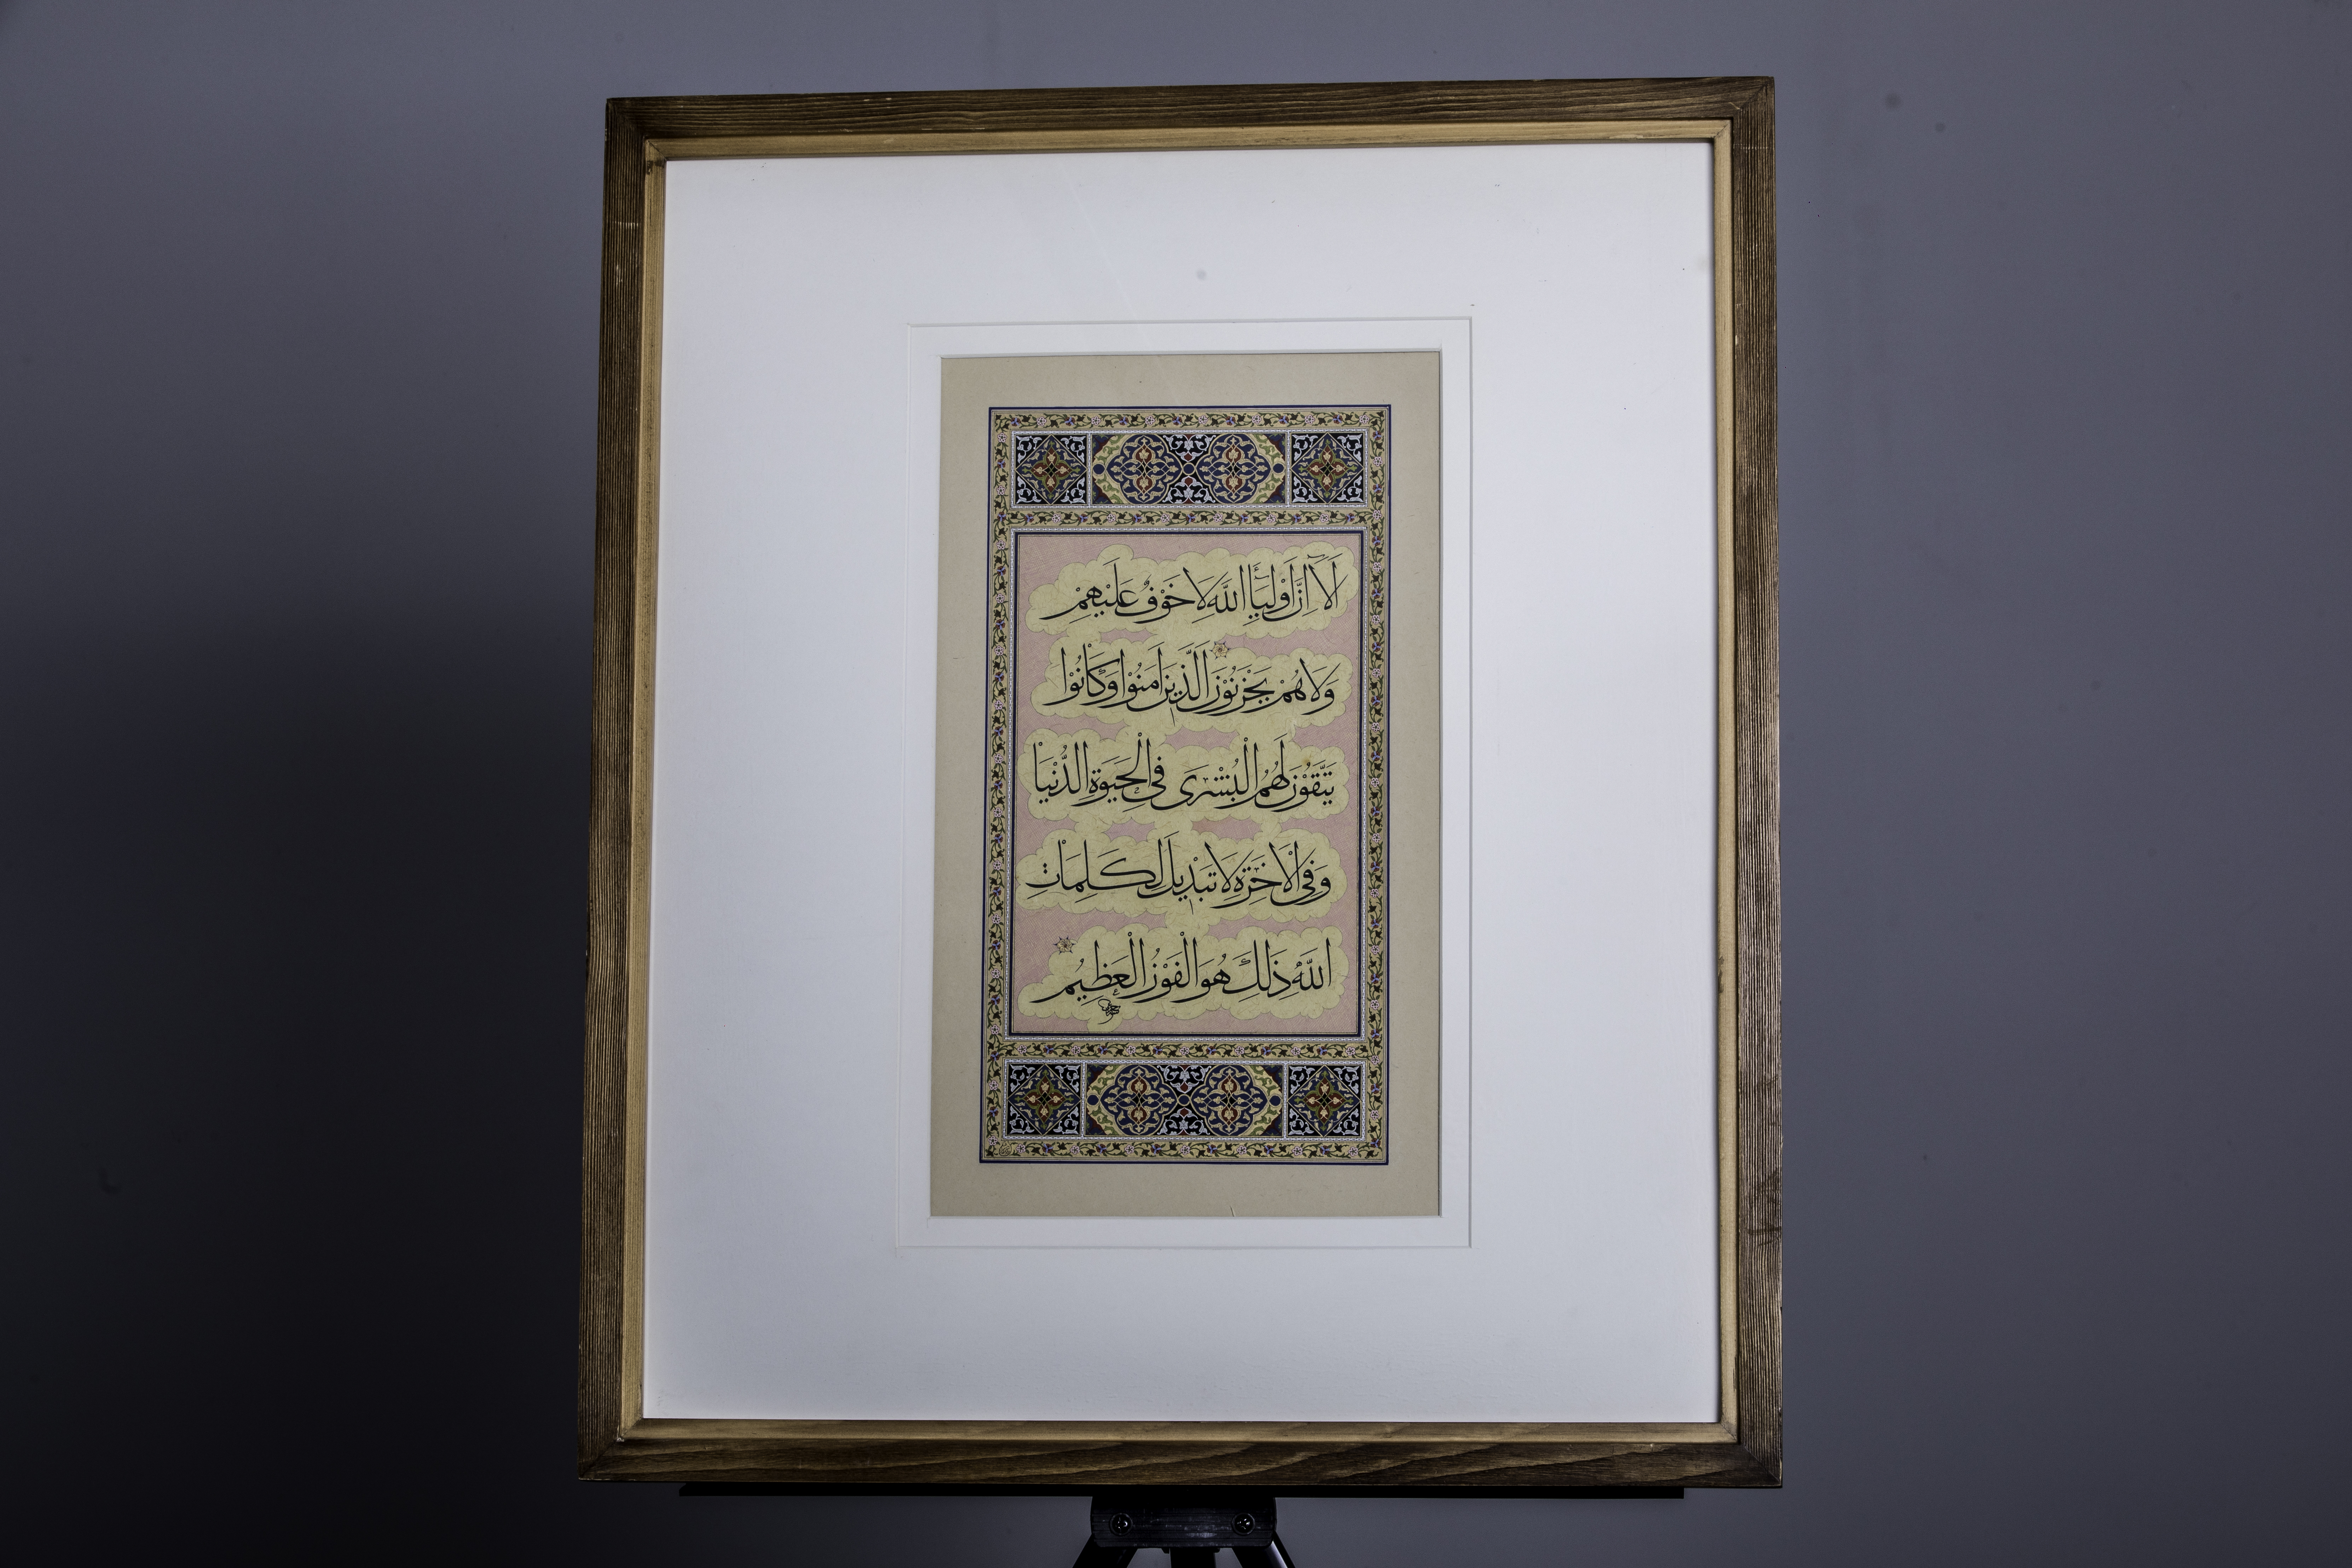 أَلَآ اِنَّ اَوْلِيَٓاءَ اللّٰهِ لَا خَوْفٌ عَلَيْهِمْ
وَلَا هُمْ يَحْزَنُوْنَ الَّذِينَ اٰمَنُوْا وَكَانُوْا
يَتَّقُوْنَ لَهُمُ الْبُشْرٰى فِى الْحَيٰوةِ الدُّنْيَا
وَفِى الْاٰخِرَةِ لَا تَبْدِيلَ لِكَلِمَاتِ
اللّٰهِ ذٰلِكَ هُوَ الْفَوْزُ الْعَظِيمُ